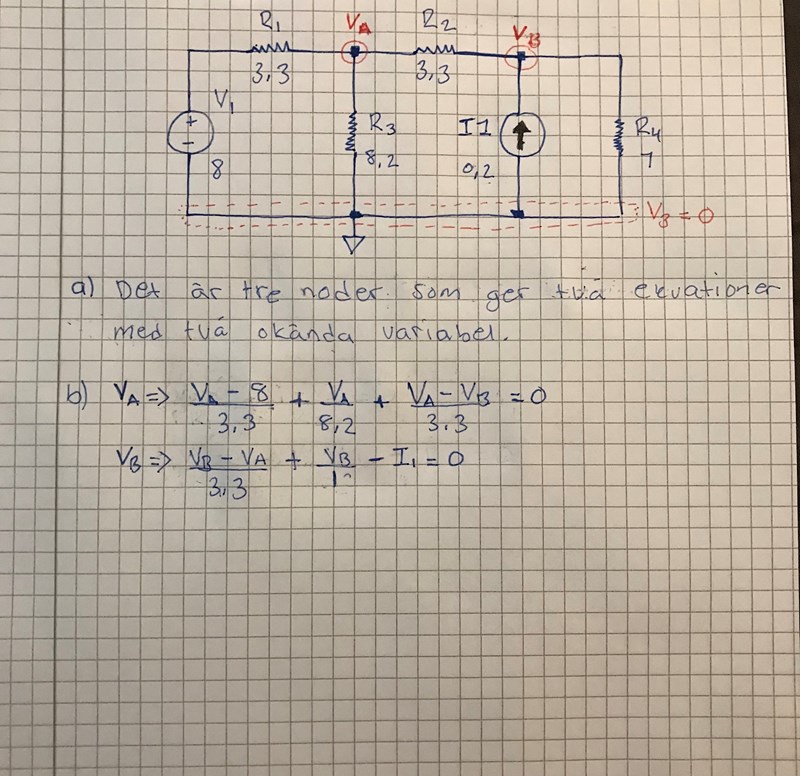 R₁ V_A R₂ V_B
3,3 3,3
V₁ + − 8
R₃ 8,2
I1 0,2
R₄
V₃ = 0
a) Det är tre noder som ger två ekvationer
med två okända variabel.
b) V_A => (V_A − 8)/3,3 + V_A/8,2 + (V_A − V_B)/3,3 = 0
V_B => (V_B − V_A)/3,3 + V_B/1 − I₁ = 0